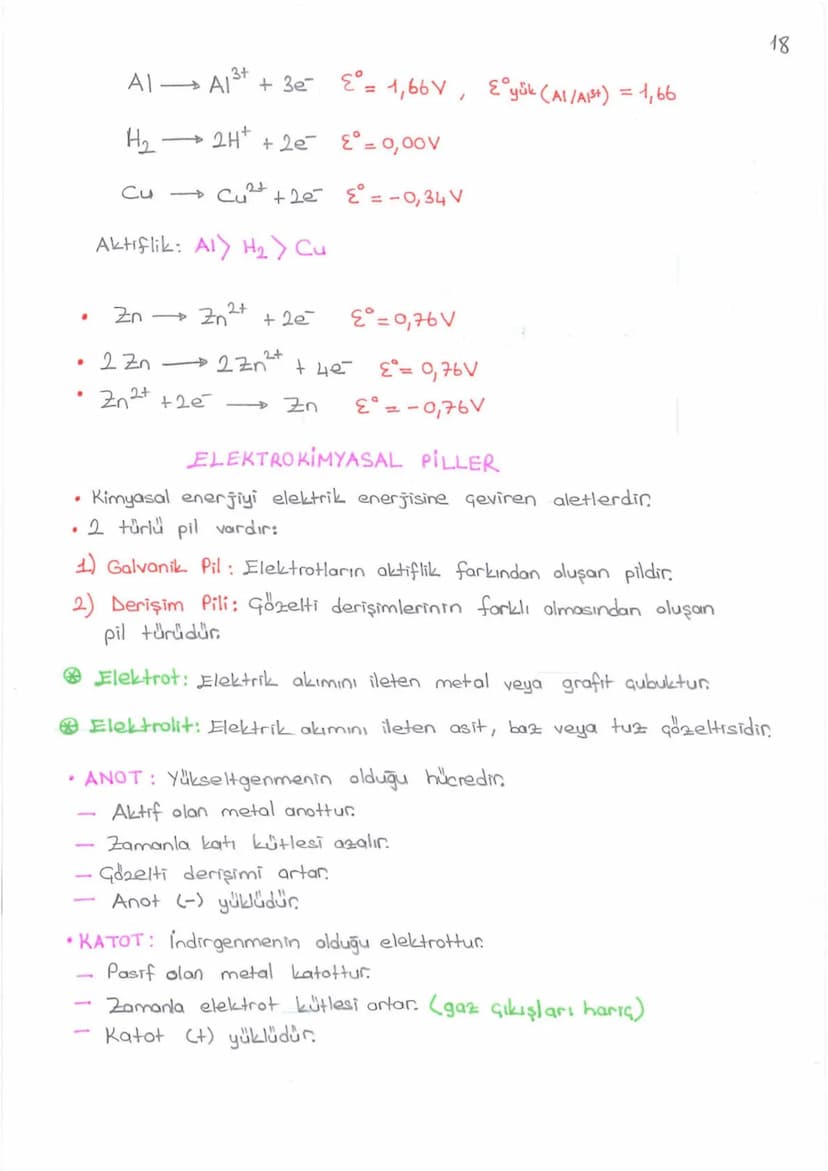 18
Al → Al³⁺ + 3e⁻ Ɛ° = 1,66V , Ɛ°yük (Al/Al³⁺) = 1,66
H₂ → 2H⁺ + 2e⁻ Ɛ° = 0,00V
Cu → Cu²⁺ + 2e⁻ Ɛ° = -0,34V
Aktiflik: Al > H₂ > Cu
• Zn → Zn²⁺ + 2e⁻ Ɛ° = 0,76V
• 2 Zn → 2 Zn²⁺ + 4e⁻ Ɛ° = 0,76V
• Zn²⁺ + 2e⁻ → Zn Ɛ° = -0,76V
ELEKTROKİMYASAL PİLLER
• Kimyasal enerjiyi elektrik enerjisine çeviren aletlerdir.
• 2 türlü pil vardır:
1) Galvanik Pil: Elektrotların aktiflik farkından oluşan pildir.
2) Derişim Pili: Çözelti derişimlerinin farklı olmasından oluşan
pil türüdür.
⊛ Elektrot: Elektrik akımını ileten metal veya grafit çubuktur.
⊛ Elektrolit: Elektrik akımını ileten asit, baz veya tuz çözeltisidir.
• ANOT: Yükseltgenmenin olduğu hücredir.
— Aktif olan metal anottur.
— Zamanla katı kütlesi azalır.
— Çözelti derişimi artar.
— Anot (-) yüklüdür.
• KATOT: İndirgenmenin olduğu elektrottur.
— Pasif olan metal katottur.
— Zamanla elektrot kütlesi artar. (gaz çıkışları hariç)
— Katot (+) yüklüdür.